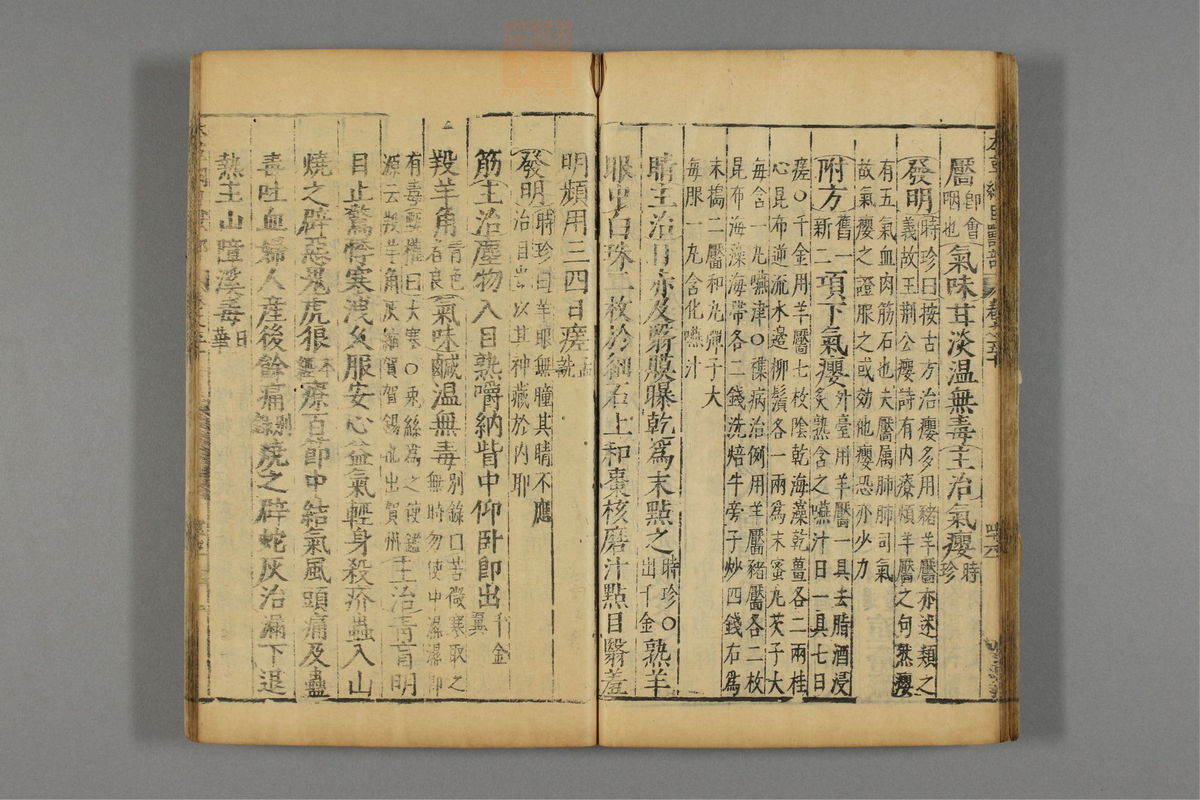 靨即會咽也氣味甘淡温無毒主治氣癭時珍
發明時珍曰按古方治癭多用猪羊靨亦述類之義故王荆公癭詩有內療煩羊靨之句然癭
有五氣血肉筋石也夫靨属肺肺司氣
故氣癭之證服之或効他癭恐亦少力
附方舊一新二項下氣癭外臺用羊靨一具去脂酒浸炙熟含之嚥汁日一具七日
瘥〇千金用羊靨七枚陰乾海藻乾薑各二兩桂
心昆布逆流水邊柳鬚各一兩爲末蜜丸芡子大
每含一丸嚥津〇雜病治例用羊靨猪靨各二枚
昆布海藻海帶各二錢洗焙牛旁子炒四錢右爲
末搗二靨和丸彈子大
每服一丸含化嚥汁
睛主治目赤及翳膜曝乾爲末點之時珍出千金〇熟羊
眼中白珠二枚於細石上和棗核磨汁點目翳羞
明頻用三四日瘥
發明時珍曰羊眼無瞳其睛不應治目豈以其神藏於内耶
筋主治塵物入目熟嚼納眥中仰卧即出千金翼
羖羊角青色者良氣味鹹温無毒别錄曰苦微寒取之無時勿使中濕濕即
有毒甄權曰大寒〇菟絲爲之使
源云羖羊角灰縮賀賀錫也出賀州主治青盲明
目止驚悸寒洩久服安心益氣輕身殺疥蟲入山
燒之辟惡鬼虎狼本經療百節中結氣風頭痛及蠱
毒吐血婦人産後餘痛别錄燒之辟蛇灰治漏下退
熱主山瘴溪毒日華